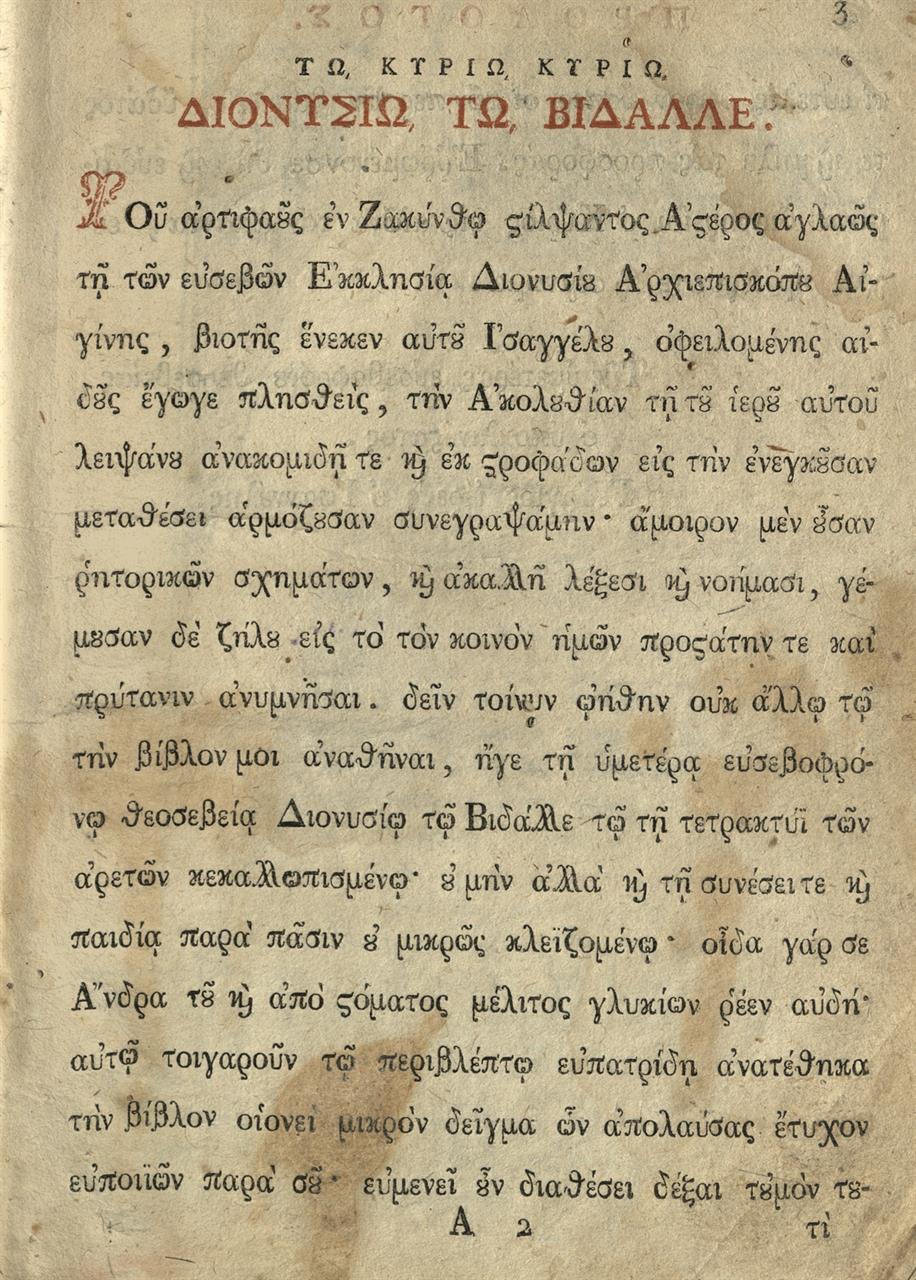 3
ΤΩ, ΚΥΡΙΩ, ΚΥΡΙΩ,
ΔΙΟΝΥΣΙΩ, ΤΩ, ΒΙΔΑΛΛΕ.
ΤΟῦ ἀρτιφαȣ͂ς ἐν Ζακύνθῳ ϛίλψαντος Ἀϛέρος ἀγλαῶς
τῇ τῶν εὐσεβῶν Ἐκκλησίᾳ Διονυσίȣ Ἀρχιεπισκόπȣ Αἰ-
γίνης, βιοτῆς ἕνεκεν αὐτȣ͂ Ἰσαγγέλȣ, ὀφειλομένης αἰ-
δȣ͂ς ἔγωγε πλησθεὶς, τὴν Ἀκολȣθίαν τῇ τȣ͂ ἱερȣ͂ αὐτοῦ
λειψάνȣ ἀνακομιδῇ τε ϗ ἐκ ϛροφάδων εἰς τὴν ἐνεγκȣ͂σαν
μεταθέσει ἁρμόζȣσαν συνεγραψάμην· ἄμοιρον μὲν ȣ̓͂σαν
ῥητορικῶν σχημάτων, ϗ ἀκαλλῆ λέξεσι ϗ νοήμασι, γέ-
μȣσαν δὲ ζήλȣ εἰς τὸ τὸν κοινὸν ἡμῶν προϛάτην τε καὶ
πρύτανιν ἀνυμνῆσαι. δεῖν τοίνυν ᾠήθην οὐκ ἄλλῳ τῷ
τὴν βίβλον μοι ἀναθῆναι, ἤγε τῇ ὑμετέρᾳ εὐσεβοφρό-
νῳ θεοσεβείᾳ Διονυσίῳ τῷ Βιδάλλε τῷ τῇ τετρακτύϊ τῶν
ἀρετῶν κεκαλλωπισμένῳ· ȣ̓ μὴν ἀλλὰ ϗ τῇ συνέσει τε ϗ
παιδίᾳ παρὰ πᾶσιν ȣ̓ μικρῶς κλεϊζομένῳ· οἶδα γάρ σε
Ἄνδρα τȣ͂ ϗ ἀπὸ ϛόματος μέλιτος γλυκίων ῥέεν αὐδή·
αὐτῷ τοιγαροῦν τῷ περιβλέπτῳ εὐπατρίδῃ ἀνατέθηκα
τὴν βίβλον οἱονεὶ μικρὸν δεῖγμα ὧν ἀπολαύσας ἔτυχον
εὐποιϊῶν παρὰ σȣ͂· εὐμενεῖ ȣ̓͂ν διαθέσει δέξαι τȣ̓μὸν τȣ-
Α 2 τὶ